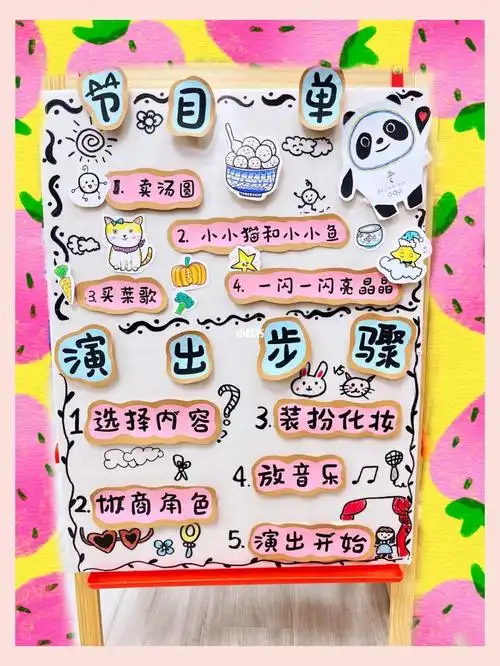 节目单
1. 卖汤圆
2. 小小猫和小小鱼
3.买菜歌
4. 一闪一闪亮晶晶
演出步骤
1 选择内容
2. 协商角色
VS
3. 装扮化妆
4. 放音乐
5. 演出开始
小红书